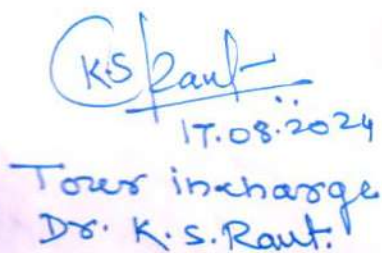 KS Raut
17.08.2024
Tour incharge
Dr. K.S.Raut.